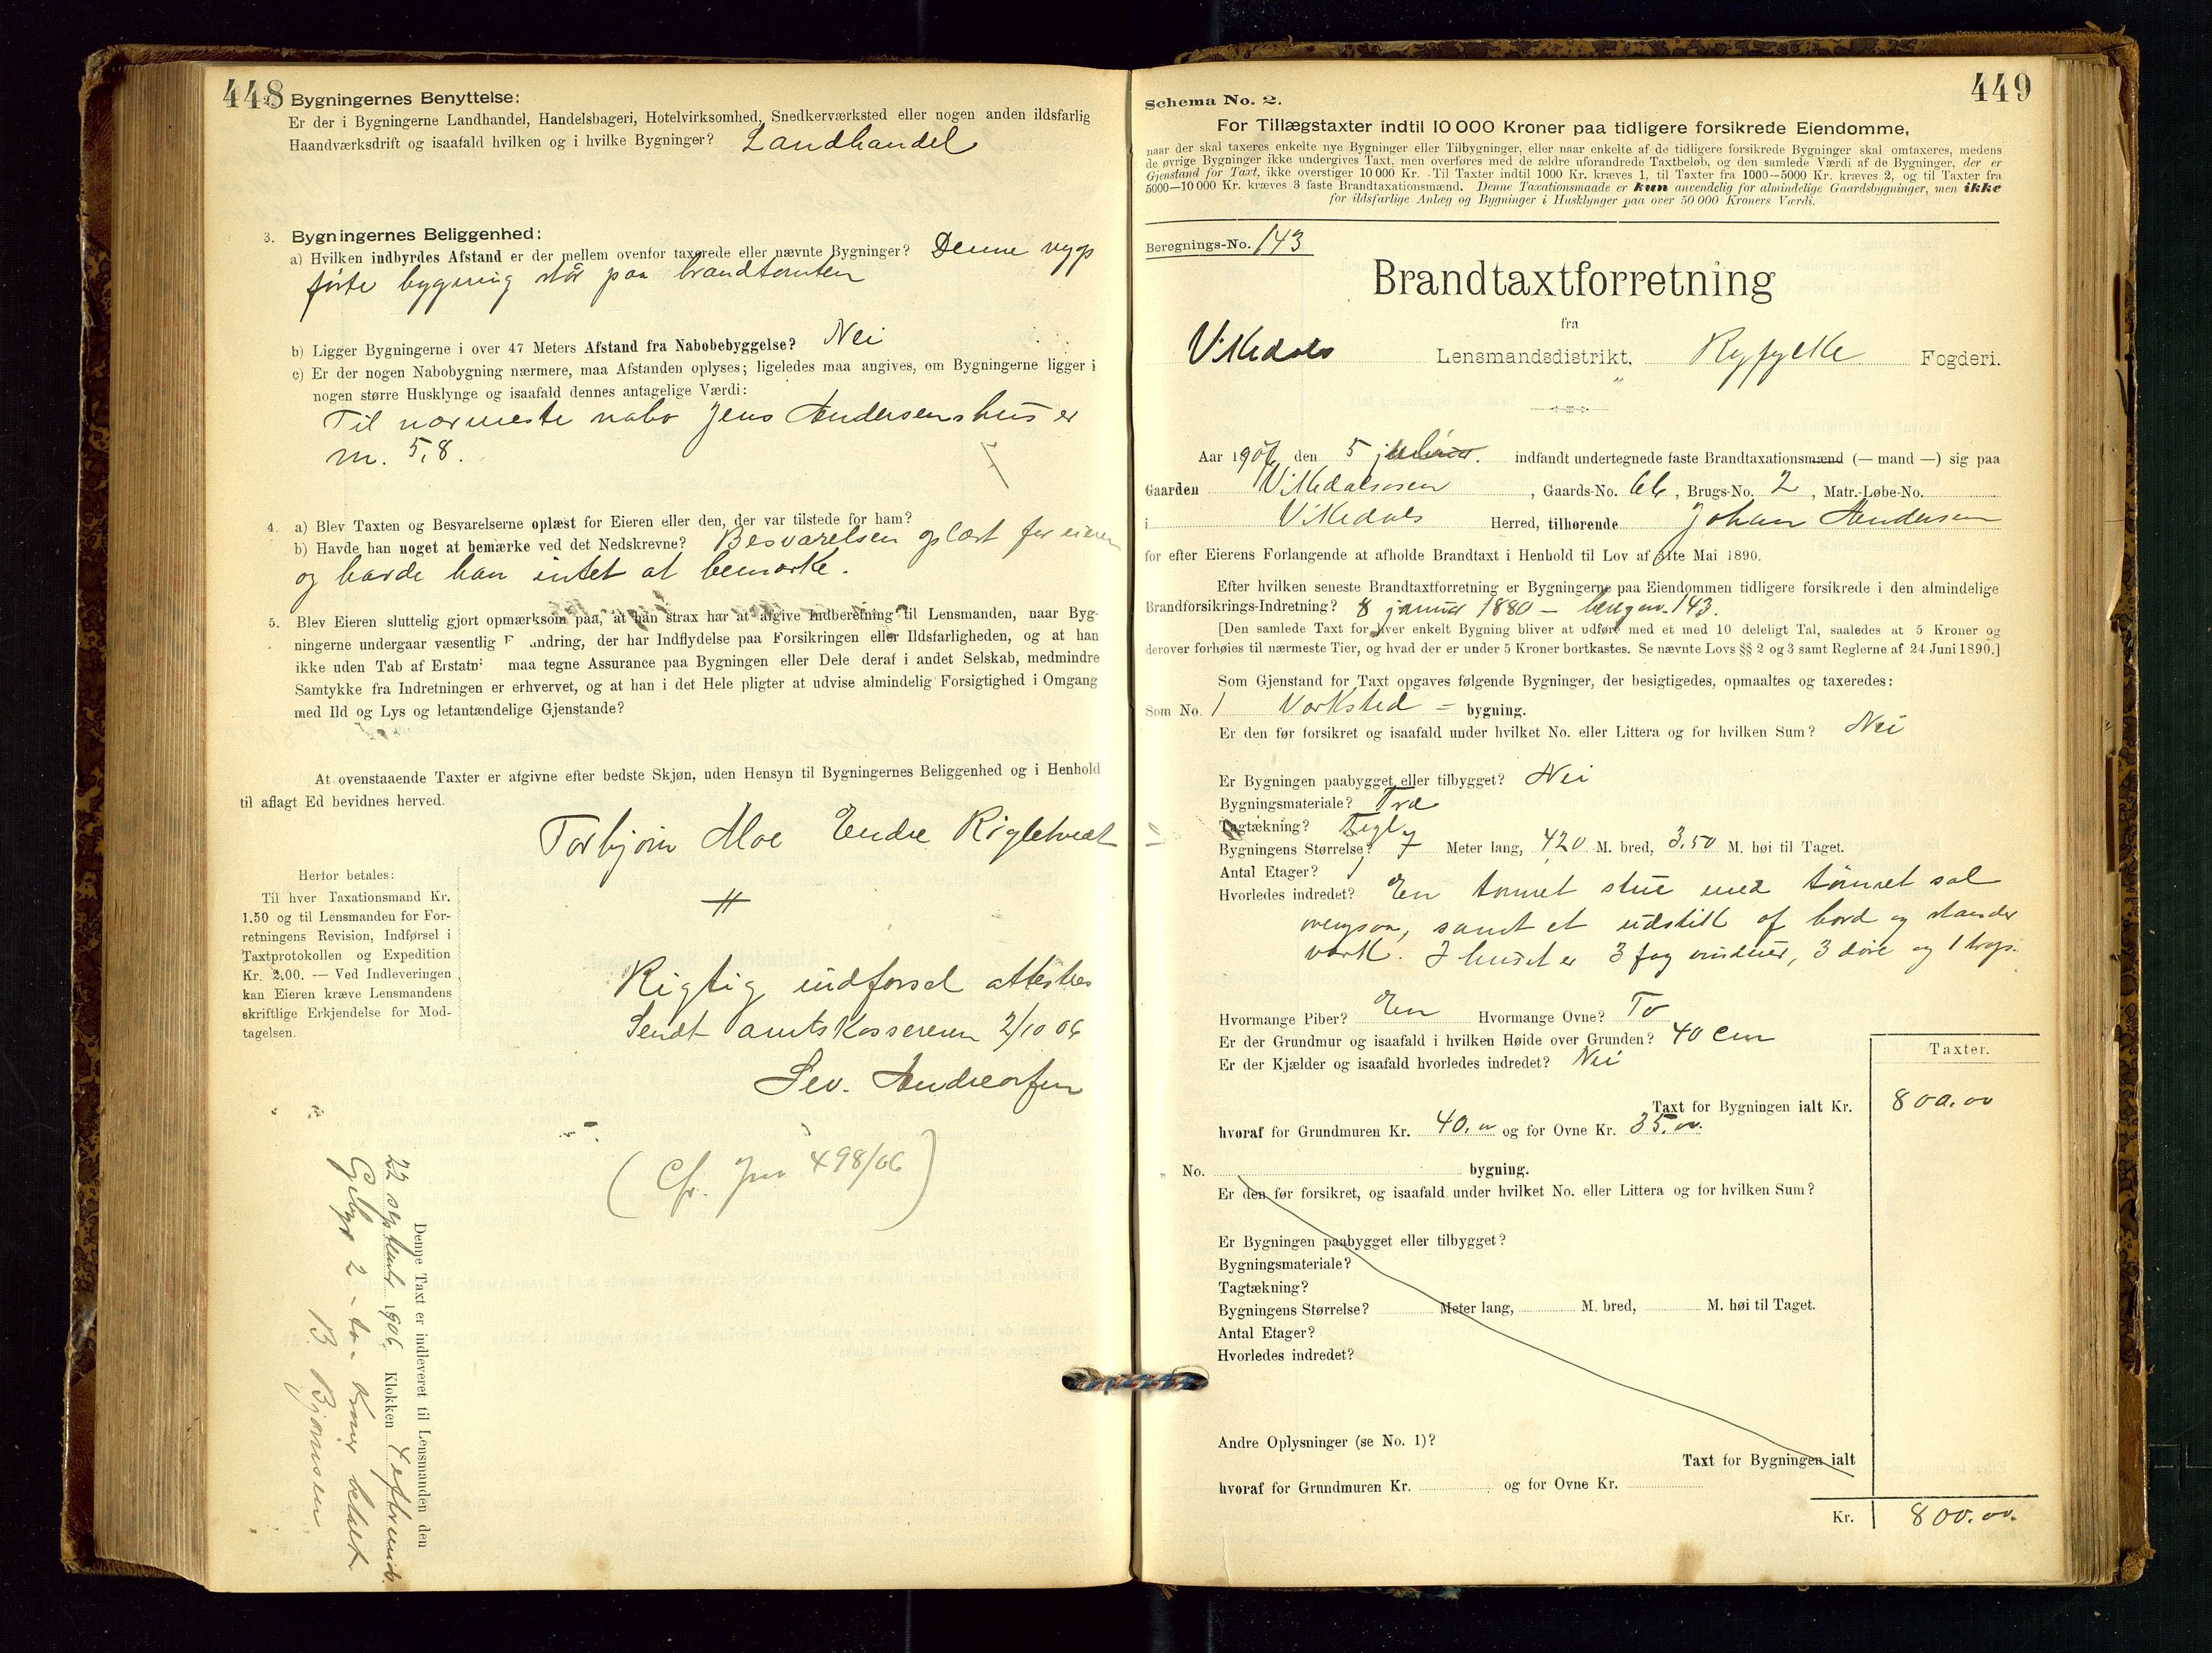 448
2. Bygningernes Benyttelse:
Er der i Bygningerne Landhandel, Handelsbageri, Hotelvirksomhed, Snedkerværksted eller nogen anden ildsfarlig
Haandværksdrift og isaafald hvilken og i hvilke Bygninger? Landhandel
3. Bygningernes Beliggenhed:
a) Hvilken indbyrdes Afstand er der mellem ovenfor taxerede eller nævnte Bygninger? Denne nyop
førte bygning står paa brandtomten
b) Ligger Bygningerne i over 47 Meters Afstand fra Nabobebyggelse? Nei
c) Er der nogen Nabobygning nærmere, maa Afstanden oplyses; ligeledes maa angives, om Bygningerne ligger i
nogen større Husklynge og isaafald dennes antagelige Værdi:
Til nærmeste nabo Jens Andersens hus er
m. 5,8.
4. a) Blev Taxten og Besvarelserne oplæst for Eieren eller den, der var tilstede for ham?
b) Havde han noget at bemærke ved det Nedskrevne? Besvarelsen oplæst for eieren
og havde han intet at bemærke.
5. Blev Eieren sluttelig gjort opmærksom paa, at han strax har at afgive Indberetning til Lensmanden, naar Byg-
ningerne undergaar væsentlig F andring, der har Indflydelse paa Forsikringen eller Ildsfarligheden, og at han
ikke uden Tab af Erstatn maa tegne Assurance paa Bygningen eller Dele deraf i andet Selskab, medmindre
Samtykke fra Indretningen er erhvervet, og at han i det Hele pligter at udvise almindelig Forsigtighed i Omgang
med Ild og Lys og letantændelige Gjenstande?
At ovenstaaende Taxter er afgivne efter bedste Skjøn, uden Hensyn til Bygningernes Beliggenhed og i Henhold
til aflagt Ed bevidnes herved.
Torbjørn Moe Endre
Herfor betales:
Til hver Taxationsmand Kr.
1.50 og til Lensmanden for For-
retningens Revision, Indførsel i
Taxtprotokollen og Expedition
Kr. 2.00. — Ved Indleveringen
kan Eieren kræve Lensmandens
skriftlige Erkjendelse for Mod-
tagelsen.
Rigtig indførsel attesteres
Sendt amtskassereren 2/10 06
Sev. Andreassen
(Cfr. Jnr 498/06)
Denne Taxt er indleveret til Lensmanden den
22 september 1906 Klokken 4 eftermid.
Gebyr 2 - to - kroner betalt
B. Bjørnsen
449
Schema No. 2.
For Tillægstaxter indtil 10 000 Kroner paa tidligere forsikrede Eiendomme,
naar der skal taxeres enkelte nye Bygninger eller Tilbygninger, eller naar enkelte af de tidligere forsikrede Bygninger skal omtaxeres, medens
de øvrige Bygninger ikke undergives Taxt, men overføres med de ældre uforandrede Taxtbeløb, og den samlede Værdi af de Bygninger, der er
Gjenstand for Taxt, ikke overstiger 10 000 Kr. Til Taxter indtil 1000 Kr. kræves 1, til Taxter fra 1000—5000 Kr. kræves 2, og til Taxter fra
5000—10 000 Kr. kræves 3 faste Brandtaxationsmænd. Denne Taxationsmaade er kun anvendelig for almindelige Gaardsbygninger, men ikke
for ildsfarlige Anlæg og Bygninger i Husklynger paa over 50 000 Kroners Værdi.
Beregnings-No. 143
Brandtaxtforretning
fra
Vikedals Lensmandsdistrikt, Ryfylke Fogderi.
Aar 1906 den 5 indfandt undertegnede faste Brandtaxationsmænd (— mand —) sig paa
Gaarden Vikedalsosen, Gaards-No. 66, Brugs-No. 2, Matr.-Løbe-No.
i Vikedals Herred, tilhørende Johan Andersen
for efter Eierens Forlangende at afholde Brandtaxt i Henhold til Lov af 31te Mai 1890.
Efter hvilken seneste Brandtaxtforretning er Bygningerne paa Eiendommen tidligere forsikrede i den almindelige
Brandforsikrings-Indretning? 8 januar 1880 — 143.
[Den samlede Taxt for hver enkelt Bygning bliver at udføre med et med 10 deleligt Tal, saaledes at 5 Kroner og
derover forhøies til nærmeste Tier, og hvad der er under 5 Kroner bortkastes. Se nævnte Lovs §§ 2 og 3 samt Reglerne af 24 Juni 1890.]
Som Gjenstand for Taxt opgaves følgende Bygninger, der besigtigedes, opmaaltes og taxeredes:
Som No. 1 Værksted - bygning.
Er den før forsikret og isaafald under hvilket No. eller Littera og for hvilken Sum? Nei
Er Bygningen paabygget eller tilbygget? Nei
Bygningsmateriale? Træ
Tagtækning? Tegl
Bygningens Størrelse? 7 Meter lang, 4,20 M. bred, 3,50 M. høi til Taget.
Antal Etager? 1
Hvorledes indredet? En tømret stue med tømret sal
ovenpaa, samt et udskilt af bord og stænder
værk. I huset er 3 fag vinduer, 3 døre og 1 trap.
Hvormange Piber? En Hvormange Ovne? To
Er der Grundmur og isaafald i hvilken Høide over Grunden? 40 Cm
Er der Kjælder og isaafald hvorledes indredet? Nei
Taxter.
Taxt for Bygningen ialt Kr. 800.00
hvoraf for Grundmuren Kr. 40.00 og for Ovne Kr. 35.00
No. bygning.
Er den før forsikret, og isaafald under hvilket No. eller Littera og for hvilken Sum?
Er Bygningen paabygget eller tilbygget?
Bygningsmateriale?
Tagtækning?
Bygningens Størrelse? Meter lang, M. bred, M. høi til Taget.
Antal Etager?
Hvorledes indredet?
Andre Oplysninger (se No. 1)?
Taxt for Bygningen ialt
hvoraf for Grundmuren Kr. og for Ovne Kr.
Kr. 800.00.